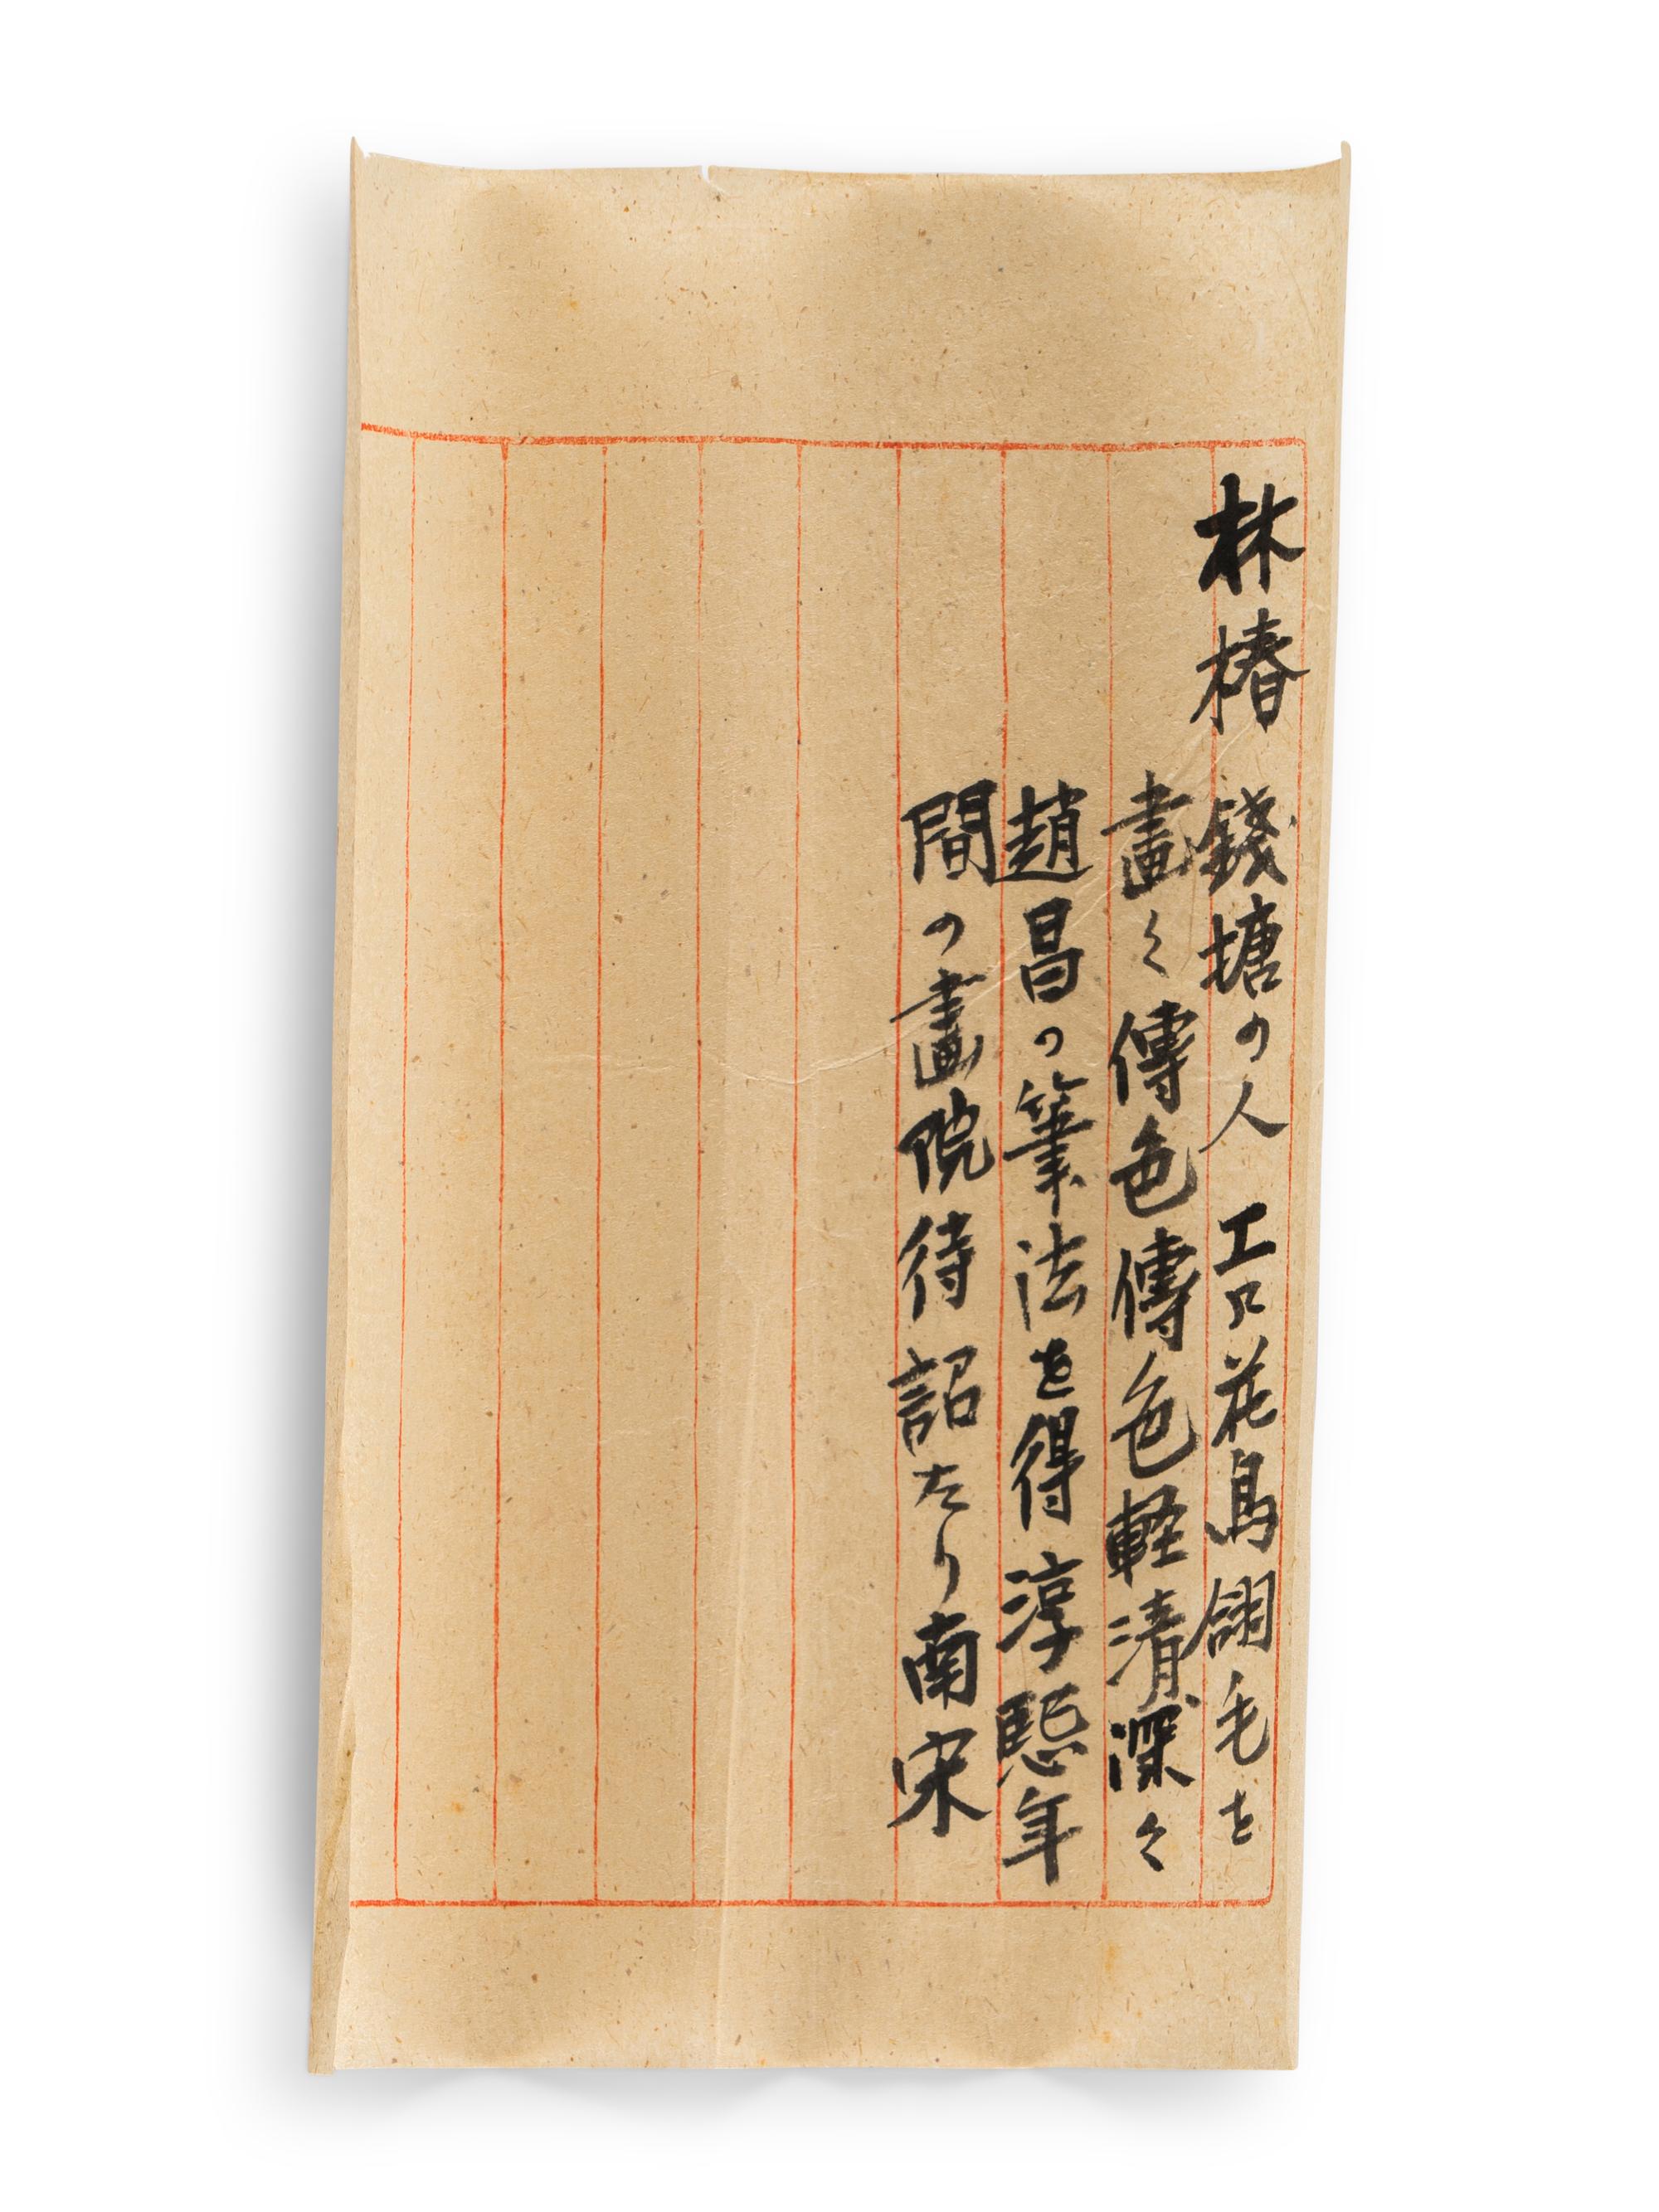 林椿 錢塘の人 工ニ花鳥翎毛を
畫く傳色傳色軽清深く
趙昌の筆法を得淳熈年
間の畫院待詔たり南宋